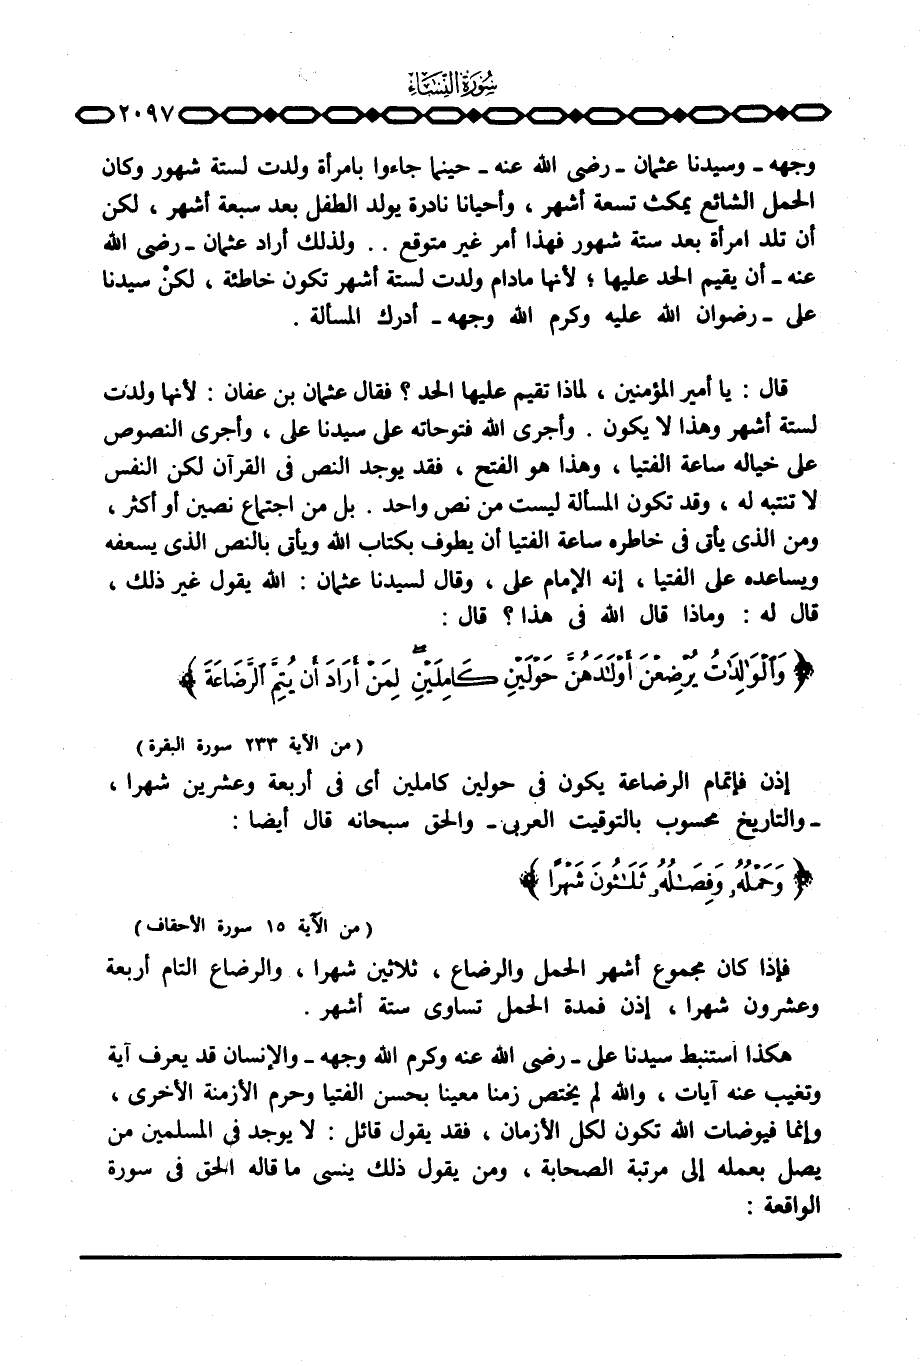 سُورَةُ النِّسَاءِ
٢٠٩٧
وجهه ـ وسيدنا عثمان ـ رضى الله عنه ـ حينما جاءوا بامرأة ولدت لستة شهور وكان
الحمل الشائع يمكث تسعة أشهر ، وأحيانا نادرة يولد الطفل بعد سبعة أشهر ، لكن
أن تلد امرأة بعد ستة شهور فهذا أمر غير متوقع . . ولذلك أراد عثمان ـ رضى الله
عنه ـ أن يقيم الحد عليها ؛ لأنها مادام ولدت لستة أشهر تكون خاطئة ، لكنْ سيدنا
على ـ رضوان الله عليه وكرم الله وجهه ـ أدرك المسألة .
قال : يا أمير المؤمنين ، لماذا تقيم عليها الحد ؟ فقال عثمان بن عفان : لأنها ولدت
لستة أشهر وهذا لا يكون . وأجرى الله فتوحاته على سيدنا على ، وأجرى النصوص
على خياله ساعة الفتيا ، وهذا هو الفتح ، فقد يوجد النص فى القرآن لكن النفس
لا تنتبه له ، وقد تكون المسألة ليست من نص واحد . بل من اجتماع نصين أو أكثر ،
ومن الذى يأتى فى خاطره ساعة الفتيا أن يطوف بكتاب الله ويأتى بالنص الذى يسعفه
ويساعده على الفتيا ، إنه الإمام على ، وقال لسيدنا عثمان : الله يقول غير ذلك ،
قال له : وماذا قال الله فى هذا ؟ قال :
﴿ وَٱلْوَٰلِدَٰتُ يُرْضِعْنَ أَوْلَٰدَهُنَّ حَوْلَيْنِ كَامِلَيْنِ ۖ لِمَنْ أَرَادَ أَن يُتِمَّ ٱلرَّضَاعَةَ ﴾
( من الآية ٢٣٣ سورة البقرة )
إذن فإتمام الرضاعة يكون فى حولين كاملين أى فى أربعة وعشرين شهرا ،
ـ والتاريخ محسوب بالتوقيت العربى ـ والحق سبحانه قال أيضا :
﴿ وَحَمْلُهُۥ وَفِصَٰلُهُۥ ثَلَٰثُونَ شَهْرًا ﴾
( من الآية ١٥ سورة الأحقاف )
فإذا كان مجموع أشهر الحمل والرضاع ، ثلاثين شهرا ، والرضاع التام أربعة
وعشرون شهرا ، إذن فمدة الحمل تساوى ستة أشهر .
هكذا استنبط سيدنا على ـ رضى الله عنه وكرم الله وجهه ـ والإنسان قد يعرف آية
وتغيب عنه آيات ، والله لم يختص زمنا معينا بحسن الفتيا وحرم الأزمنة الأخرى ،
وإنما فيوضات الله تكون لكل الأزمان ، فقد يقول قائل : لا يوجد فى المسلمين من
يصل بعمله إلى مرتبة الصحابة ، ومن يقول ذلك ينسى ما قاله الحق فى سورة
الواقعة :